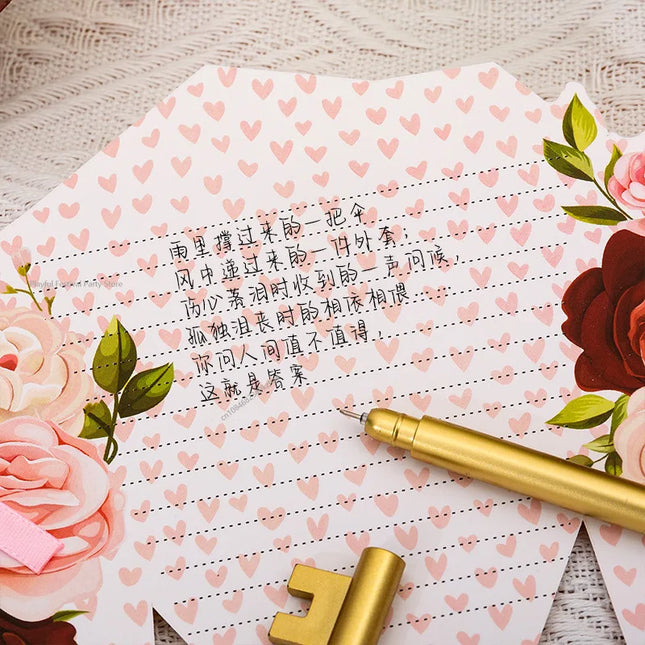 雨里撑过来的一把伞
风中递过来的一件外套，
伤心落泪时收到的一声问候，
孤独沮丧时的相依相偎......
你问人间值不值得，
这就是答案
Playful Festival Party Store